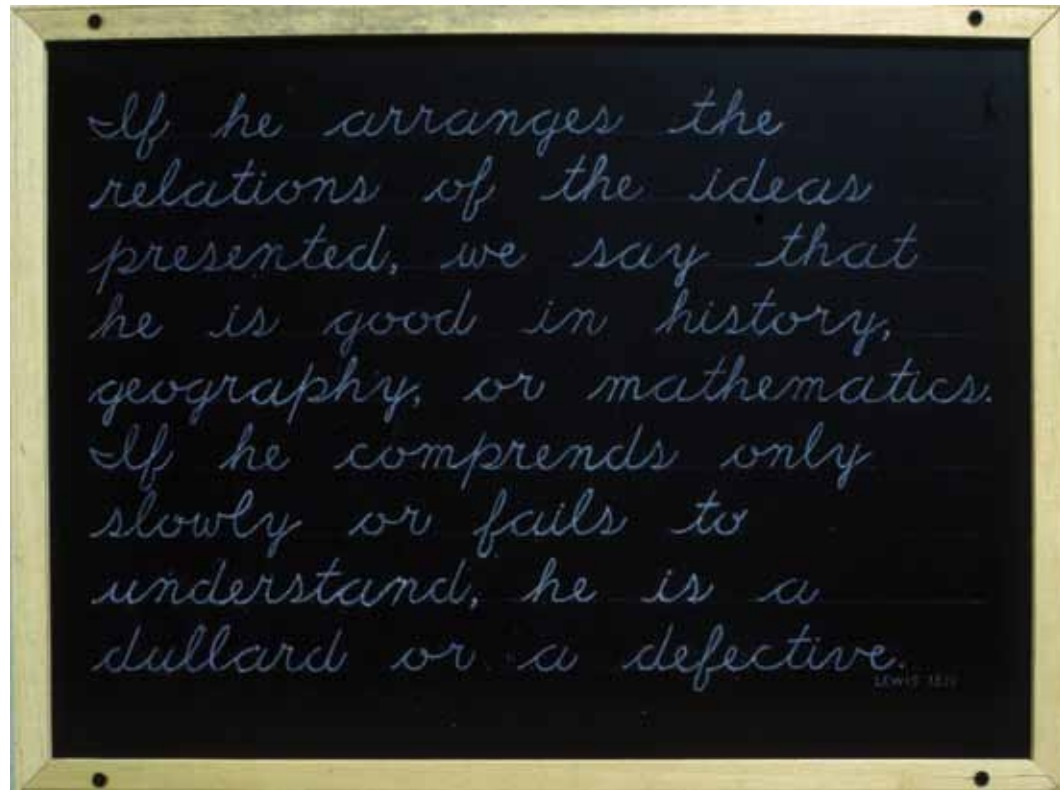 If he arranges the
relations of the ideas
presented, we say that
he is good in history,
geography, or mathematics.
If he comprends only
slowly or fails to
understand, he is a
dullard or a defective.
LEWIS